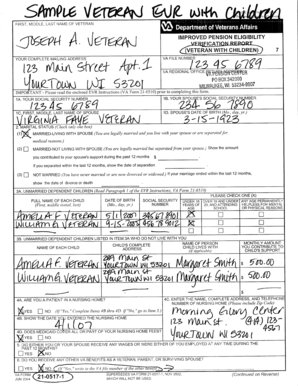 SAMPLE VETERAN EVR with Children
FIRST, MIDDLE, LAST NAME OF VETERAN
JOSEPH A. VETERAN
Department of Veterans Affairs
IMPROVED PENSION ELIGIBILITY
VERIFICATION REPORT
(VETERAN WITH CHILDREN) 7
YOUR COMPLETE MAILING ADDRESS
123 Main Street Apt. 1
YOUR TOWN WI 53201
VA FILE NUMBER
123 45 6789
VA REGIONAL OFFICE
PO BOX 342000
MILWAUKEE, WI 53234-9907
IMPORTANT: Please read the enclosed EVR Instructions, (VA Form 21-0510) prior to completing this form.
1A. YOUR SOCIAL SECURITY NUMBER
123 45 6789
1B. YOUR SPOUSE'S SOCIAL SECURITY NUMBER
234 56 7890
1C. FIRST, MIDDLE, LAST NAME OF SPOUSE
VIRGINIA FAYE VETERAN
1D. SPOUSE'S DATE OF BIRTH (Mo., day, yr.)
3-15-1923
2. MARITAL STATUS (Check only one box)
MARRIED-LIVING WITH SPOUSE (You are legally married and you live with your spouse or are separated for
medical reasons.)
(2) MARRIED-NOT LIVING WITH SPOUSE (You are legally married but separated from your spouse.) Show the amount
you contributed to your spouse's support during the past 12 months. $
If you separated within the last 12 months, show the date of separation
(3) NOT MARRIED (You have never married or are now divorced or widowed.) If your marriage ended within the last 12 months,
show the date of divorce or death
3A. UNMARRIED DEPENDENT CHILDREN (Read Paragraph 3 of the EVR Instructions, VA Form 21-0510)
FULL NAME OF EACH CHILD
DATE OF BIRTH
(Mo., day, yr.)
SOCIAL SECURITY
NUMBER
PLEASE CHECK (X):
AMELIA F VETERAN 5/1/2001 345 67 8901 X
WILLIAM G VETERAN 9-15-2003 456 78 9012 X
3B. UNMARRIED DEPENDENT CHILDREN LISTED IN ITEM 3A WHO DO NOT LIVE WITH YOU
NAME OF EACH CHILD
CHILD'S COMPLETE
ADDRESS
NAME OF PERSON
CHILD LIVES WITH
(If applicable)
MONTHLY AMOUNT
YOU CONTRIBUTE TO
CHILD'S SUPPORT
AMELIA F VETERAN YOUR TOWN WI 53201 Margaret Smith $ 500.00
WILLIAM G VETERAN YOUR TOWN WI 53201 Margaret Smith $ 500.00
$
4A. ARE YOU A PATIENT IN A NURSING HOME?
YES NO (If "Yes," complete Items 4B thru 4D. If "No," go to Item 5.)
4B. SHOW THE DATE YOU ENTERED THE NURSING HOME
4/1/07
4C. DOES MEDICAID COVER ALL OR PART OF YOUR NURSING HOME FEES?
YES NO
4D. ENTER THE NAME, COMPLETE ADDRESS, AND TELEPHONE
NUMBER OF NURSING HOME (Please include Zip Code)
Morning Glory Center
123 Main St. (414) 123-4567
YOUR TOWN WI 53201
YES NO
YES NO
VA FORM
21-0517-1